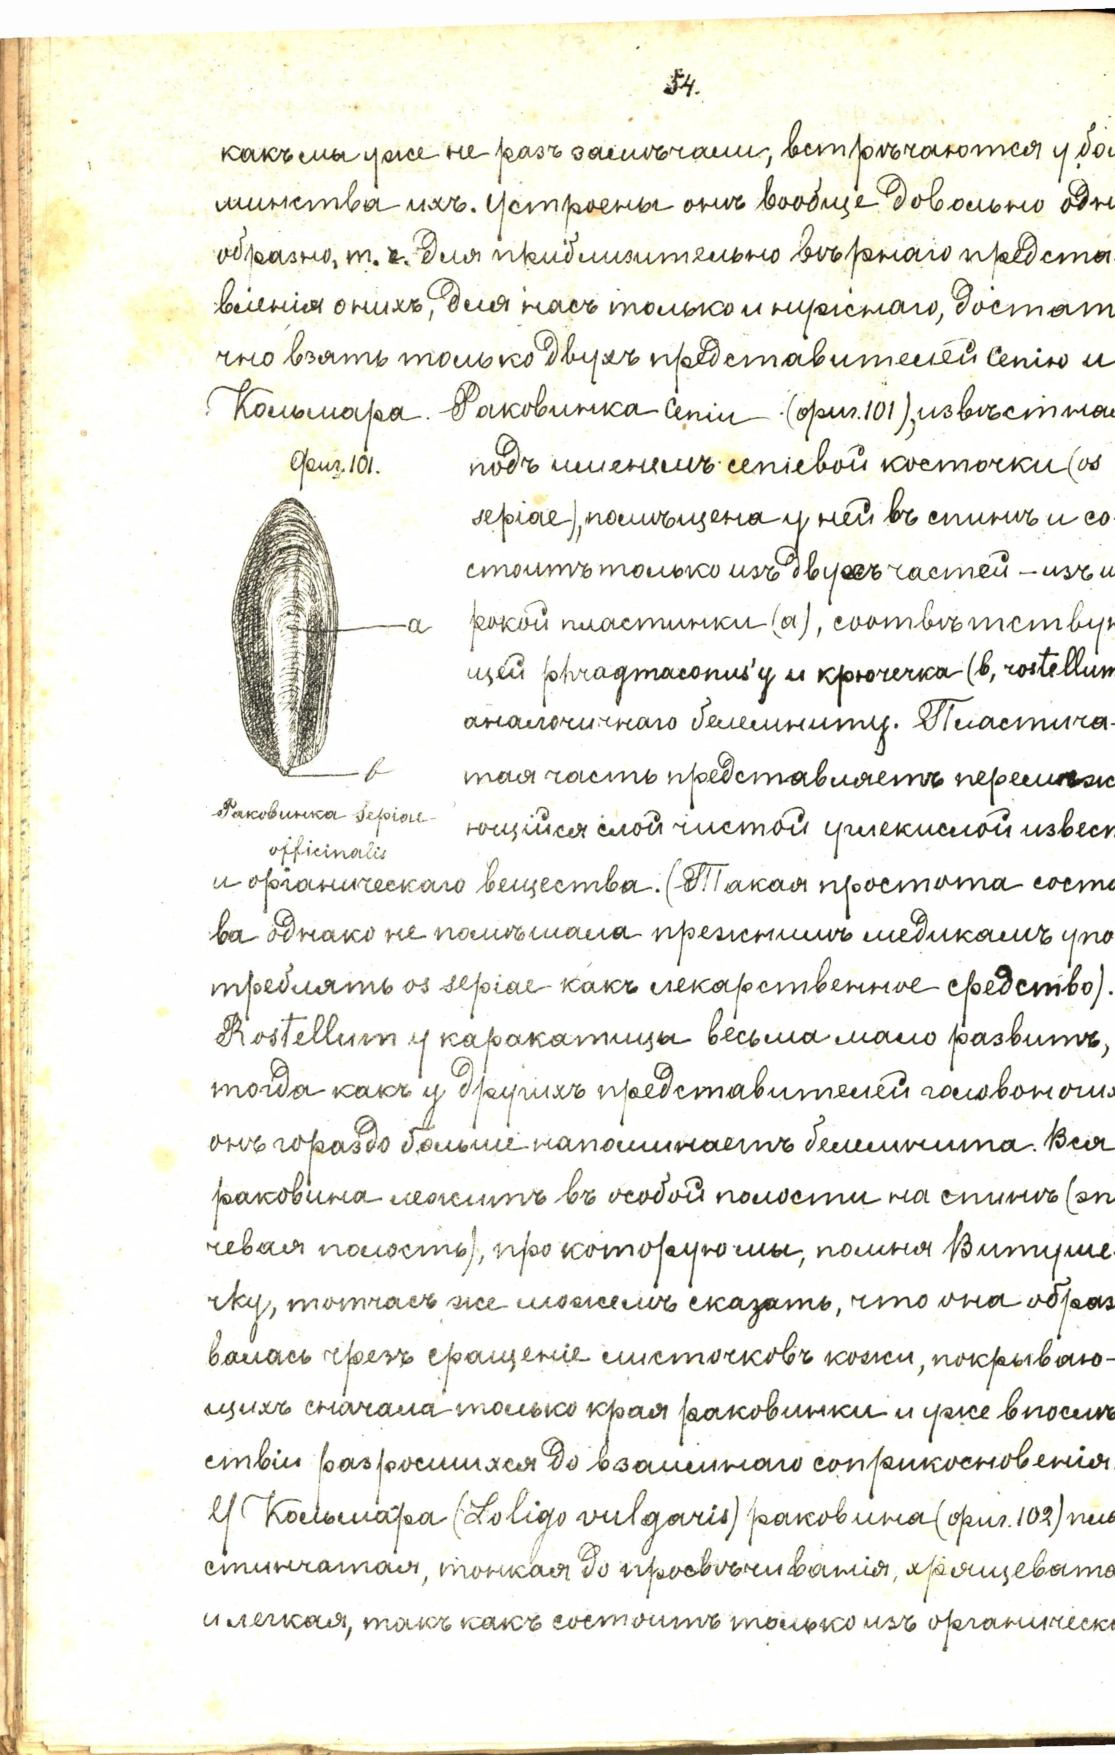 54.
какъ мы уже не разъ замѣчали, встрѣчаются у бо
шинства ихъ. Устроены онѣ вообще довольно одн
образно, т. ч. для приблизительно вѣрнаго предста-
вленія о нихъ, для насъ только и нужнаго, достат
чно взять только двухъ представителей Сепію и
Кальмара. Раковинка Сепіи (фиг. 101), извѣстна
Фиг. 101.
подъ именемъ сепіевой косточки (os
sepiae), помѣщена у ней въ спинѣ и со-
стоитъ только изъ двухъ частей – изъ ш
рокой пластинки (a), соотвѣтству
щей phragmaconus'у и крючечка (b, rostellum
аналогичнаго белемниту. Пластинча-
тая часть представляетъ перемеж
ющійся слой чистой углекислой извес
a
b
Раковинка Sepiae
officinalis
и органическаго вещества. (Такая простота соста
ва однако не помѣшала прежнимъ медикамъ упо
треблять os sepiae какъ лекарственное средство).
Rostellum у каракатицы весьма мало развитъ,
тогда какъ у другихъ представителей головоногих
онъ гораздо больше напоминаетъ белемнита. Вся
раковина лежитъ въ особой полости на спинѣ (эп
чевая полость), про которую мы, помня Витуше-
чку, тотчасъ же можемъ сказать, что она образ
валась чрезъ сращеніе листочковъ кожи, покрываю-
щихъ сначала только края раковинки и уже впослѣ
ствіи разросшихся до взаимнаго соприкосновенія.
У Кальмара (Loligo vulgaris) раковина (фиг. 102) пла
стинчатая, тонкая до просвѣчиванія, хрящевата
и легкая, такъ какъ состоитъ только изъ органическ